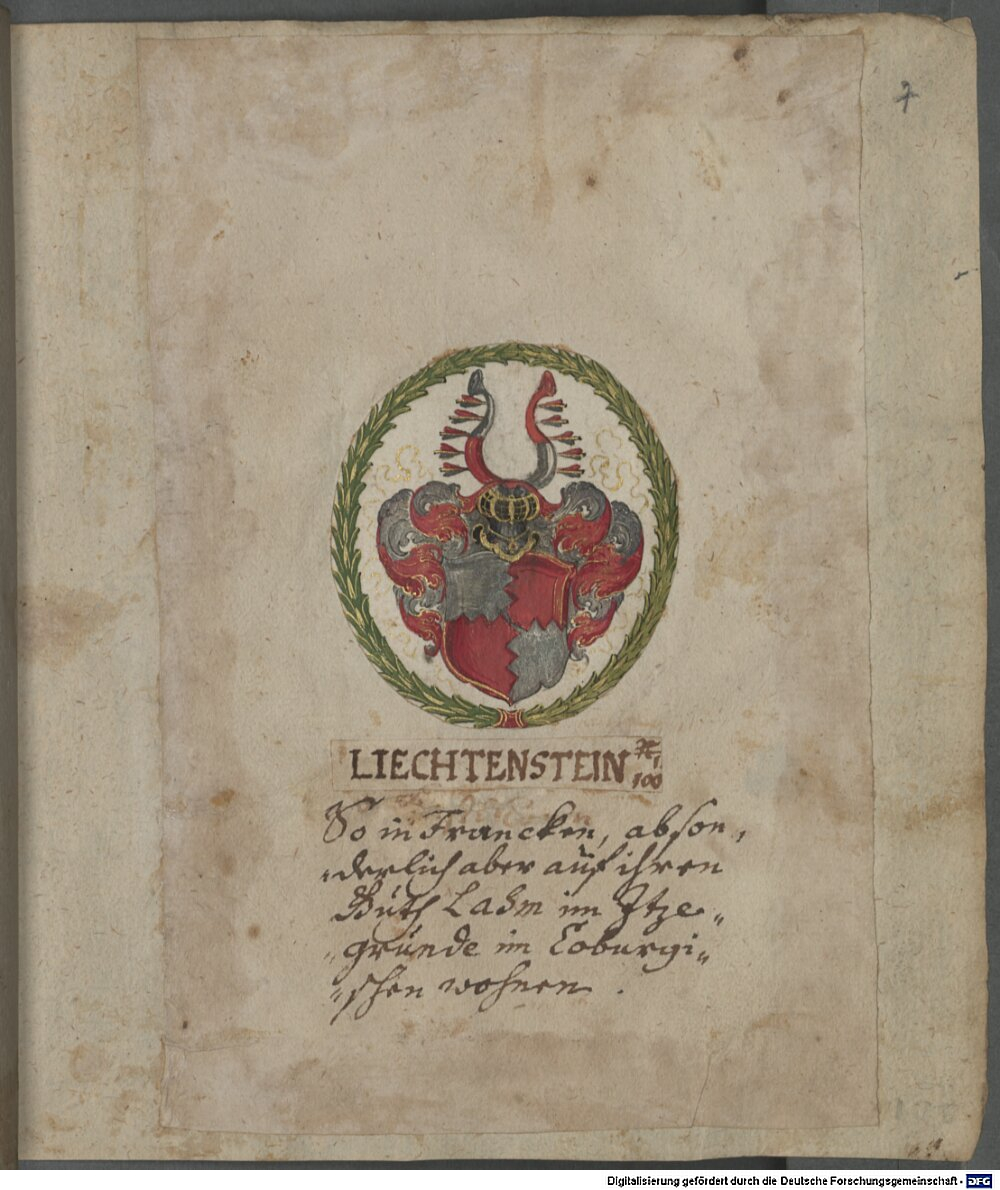 7
LIECHTENSTEIN
100
So in Francken, abson,
derlich aber auf ihren
Guth Lahm im Itze„
„grunde im Coburgi„
„schen wohnen.
Digitalisierung gefördert durch die Deutsche Forschungsgemeinschaft - DFG